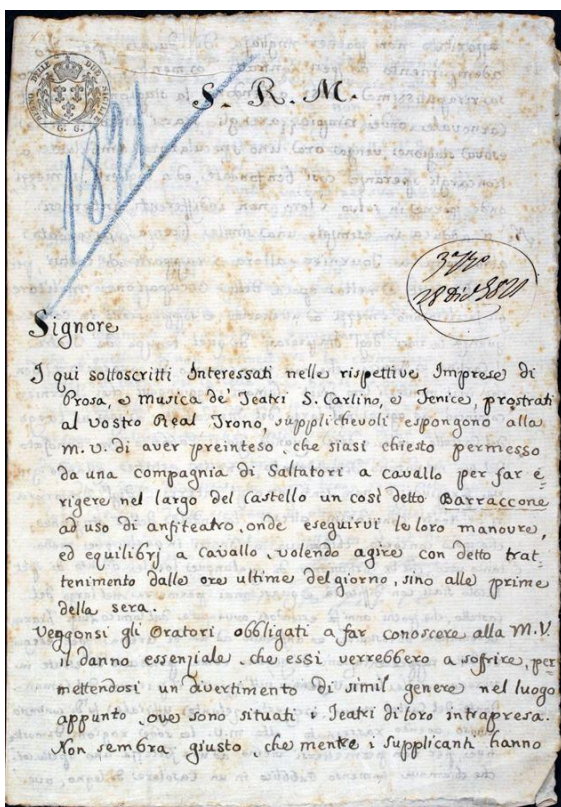 REGNO DELLE DUE SICILIE
G. 6.
1821
S. R. M.
28 Dic
Signore
I qui sottoscritti Interessati nelle rispettive Imprese di
Prosa, e musica de' Teatri S. Carlino, e Fenice, prostrati
al vostro Real Trono, supplichevoli espongono alla
M. V. di aver preinteso, che siasi chiesto permesso
da una compagnia di Saltatori a cavallo per far e=
rigere nel largo del Castello un così detto Barraccone
ad uso di anfiteatro, onde eseguirvi le loro manovre,
ed equilibrj a Cavallo, volendo agire con detto trat=
tenimento dalle ore ultime del giorno, sino alle prime
della sera.
Veggonsi gli Oratori obbligati a far conoscere alla M.V.
il danno essenziale, che essi verrebbero a soffrire, per
mettendosi un divertimento di simil genere nel luogo
appunto, ove sono situati i Teatri di loro intrapresa.
Non sembra giusto, che mentre i Supplicanti hanno